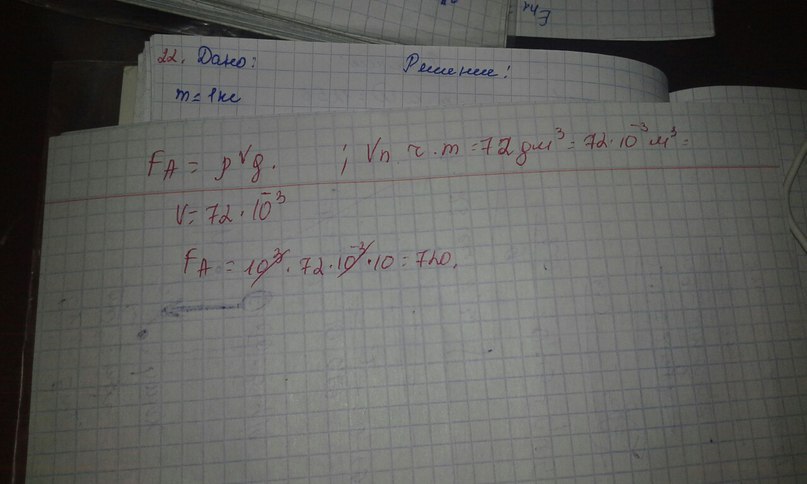 22. Дано: Решение:
m = 1 кг
FA = ρVg. ; Vп.ч.т = 72 дм³ = 72·10⁻³ м³ =
V = 72·10⁻³
FA = 10³·72·10⁻³·10 = 720.